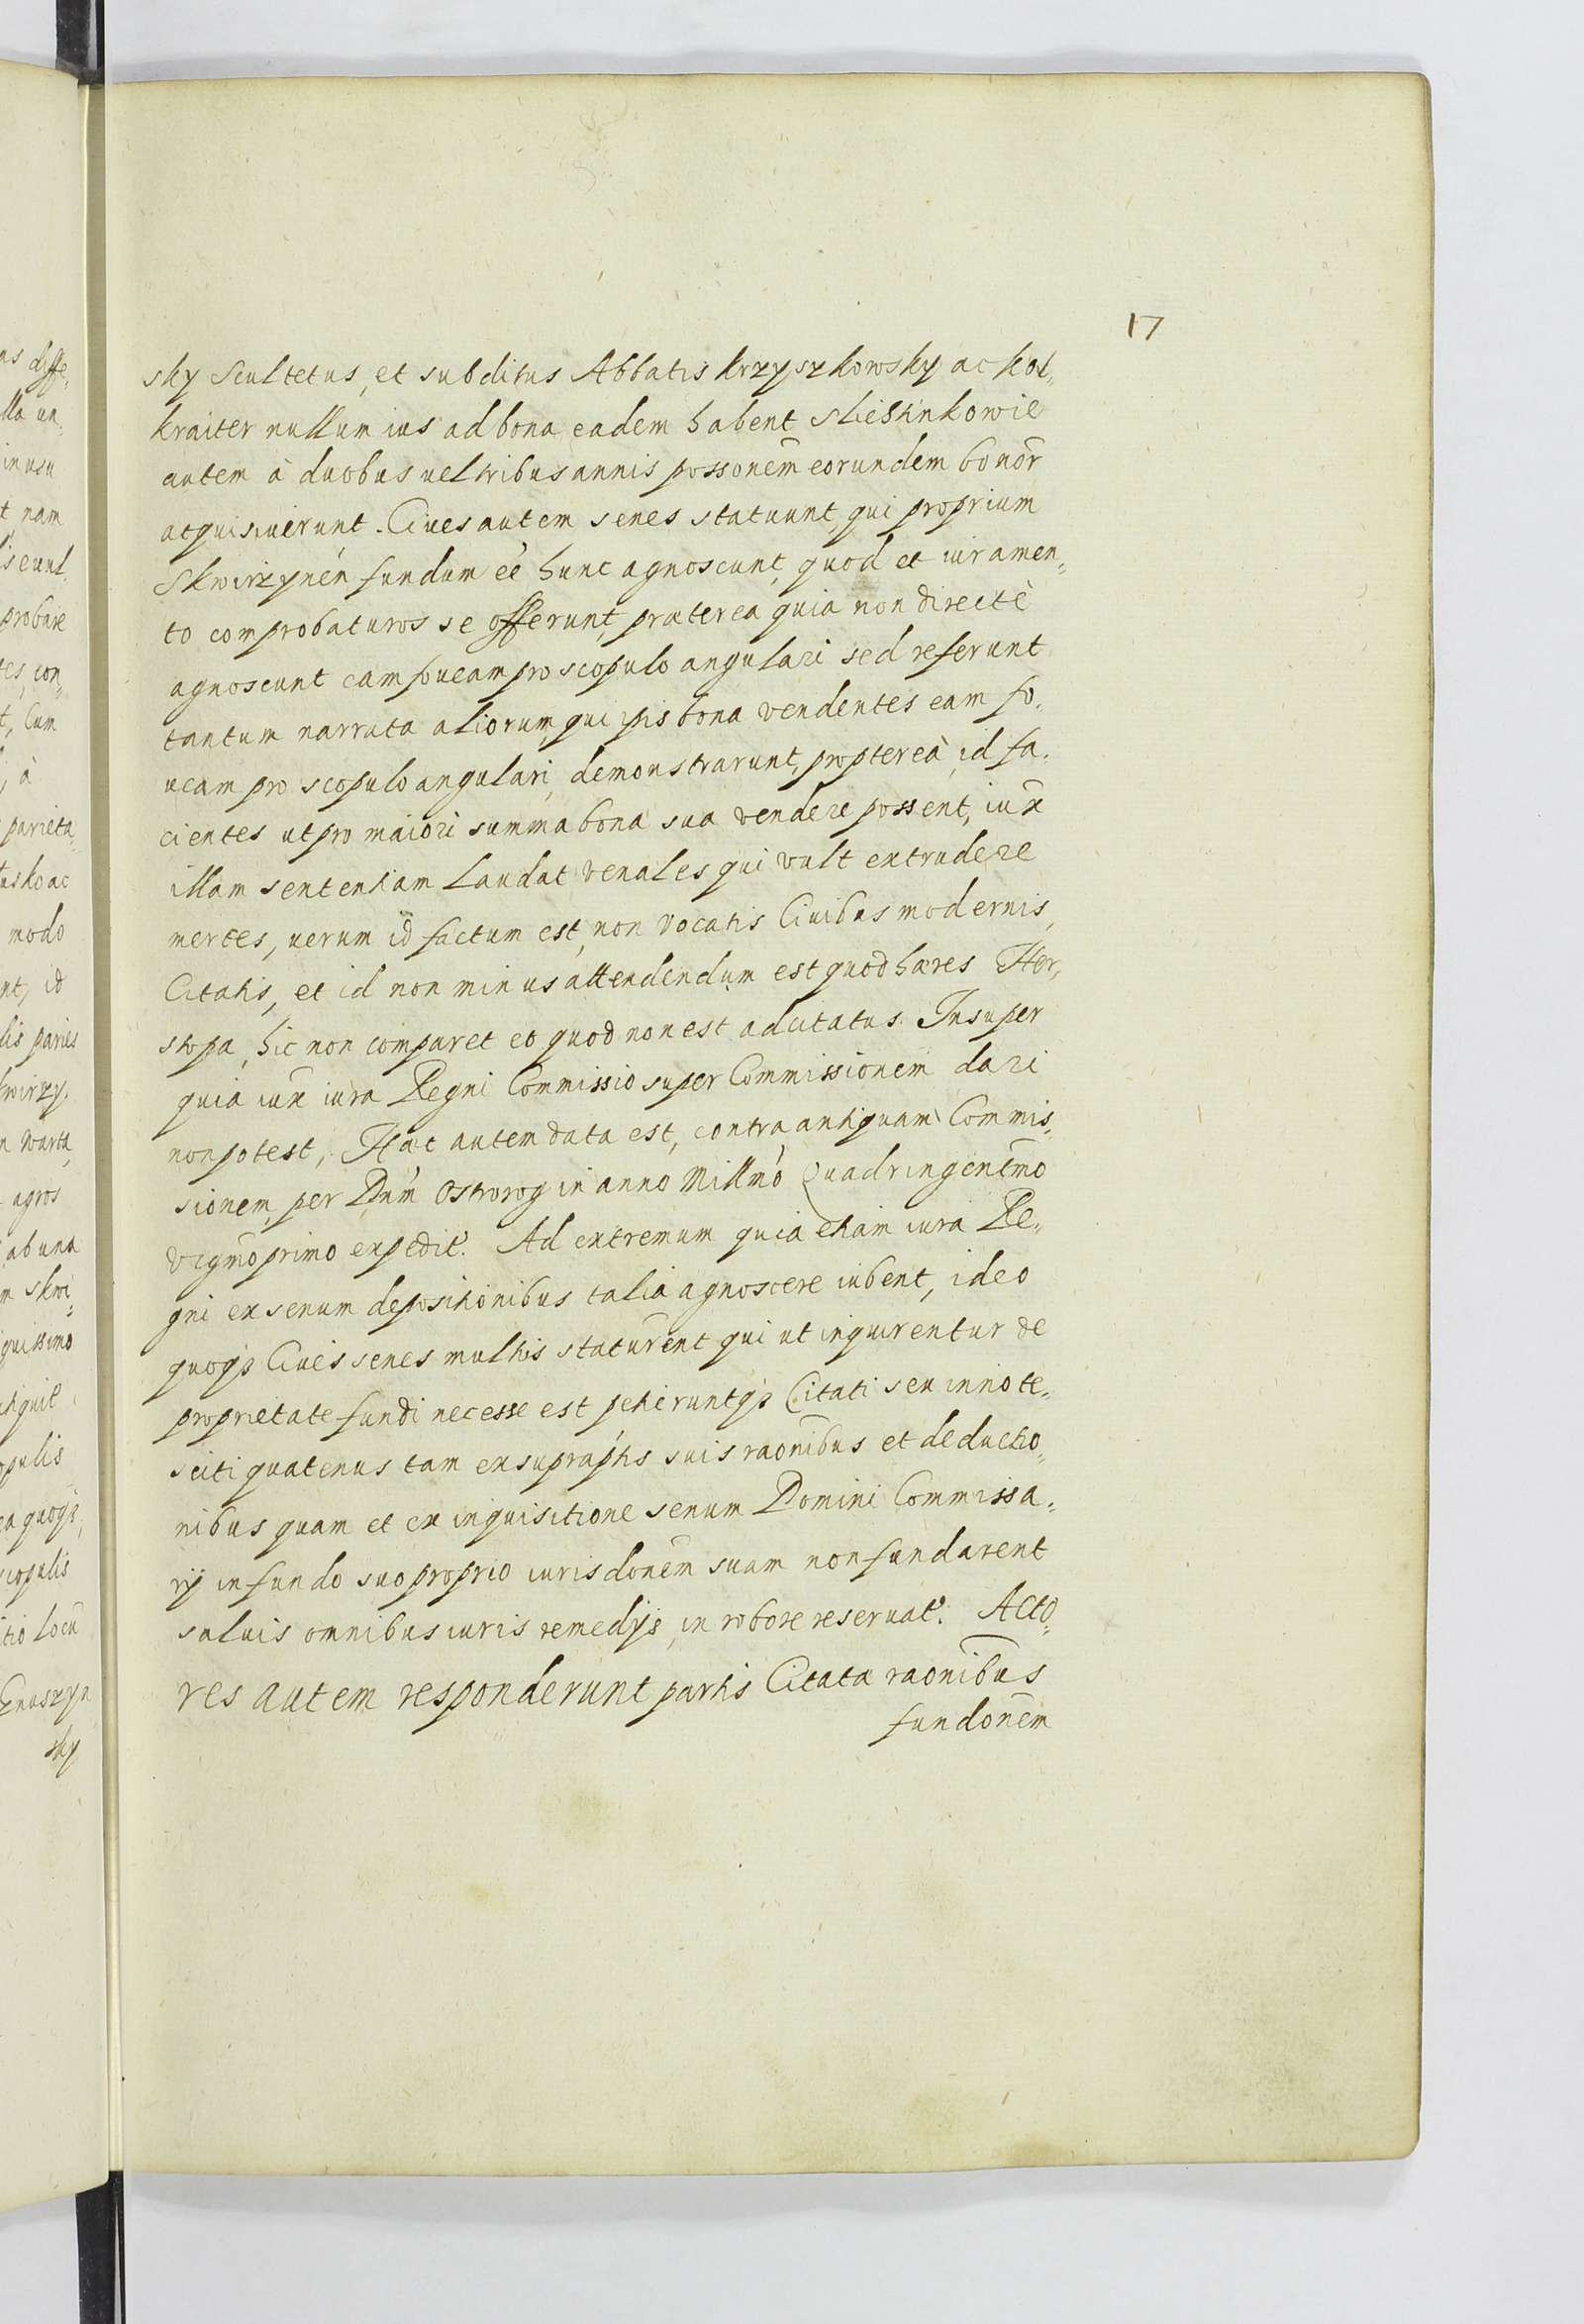 17
sky Scultetus, et subditus Abbatis krzyszkowsky ac kal„
kraiter nullum ius ad bona eadem habent
autem à duobus vel tribus annis possonēm eorundem bonōr
acquisiuerunt. Ciues autem senes statuunt, qui proprium
Skwirzynēn fundum eē hunc agnoscunt, quod et iuramen„
to comprobaturos se offerunt, præterea quia non directè
agnoscunt eam foueam pro scopulo angulari sed referunt
tantum narrata aliorum, qui ipis bona vendentes eam fo„
ueam pro scopulo angulari, demonstrarunt, proptereà, id fa„
cientes ut pro maiori summa bona sua vendere possent, iux̄
illam sententiam Laudat venales qui vult extrudere
merces, uerum id factum est, non vocatis Ciuibus modernis,
Citatis, et id non minus attendendum est quod hæres Her„
stopa, hic non comparet et quod non est adcitatus. Insuper
quia iux̄ iura Regni Commissio super Commissionem dari
non potest, Hæc autem data est, contra antiquam Commis„
sionem, per Dnm̄ Ostrorog in anno Millmō Quadringentmō
vigmō primo expedit'. Ad extremum quia etiam iura Re„
gni ex senum depositionibus talia agnoscere iubent, ideo
quoqȝ Ciues senes multis staturēnt qui ut inquirentur de
proprietate fundi necesse est petieruntqȝ Citati seu innote„
sciti quatenus tam ex supraptis suis raōnibus et deductio„
nibus quam et ex inquisitione senum Domini Commissa„
rij in fundo suo proprio iurisdonēm suam non fundarent
saluis omnibus iuris remedijs, in robore reseruat'. Acto„
res autem responderunt partis Citatæ raōnibus
fundonēm